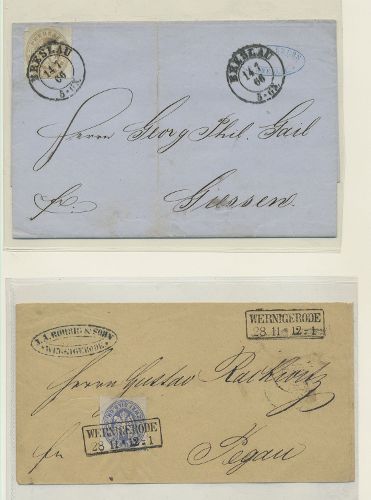 BRESLAU
14 1
66
BRESLAU
14 1
66
5-6N.
Herrn Georg Phil. Gail
fr.
Giessen.
WERNIGERODE
28 11 * 12-1
& SOHN
WERNIGERODE.
Herrn Gustav
WERNIGERODE
28 11 * 12-1
fr
Pegau